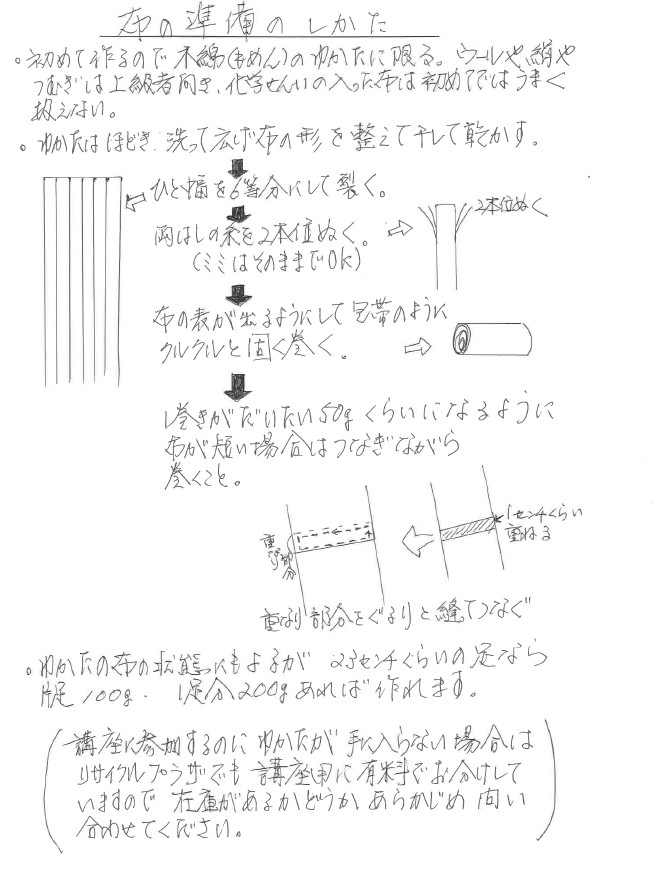 布の準備のしかた
。初めて作るので木綿(もめん)のゆかたに限る。ウールや絹や
つむぎは上級者向き、化学せんいの入った布は初めてではうまく
扱えない。
。ゆかたはほどき、洗って広げ布の形を整えて干して乾かす。
ひと幅を6等分にして裂く。
両はしの糸を2本位ぬく。
(ミミはそのままでOK)
2本位ぬく
布の表が出るようにして包帯のように
クルクルと固く巻く。
1巻きがだいたい50gくらいになるように
布が短い場合はつなぎながら
巻くこと。
1センチくらい
重ねる
重なり部分
重なり部分をぐるりと縫てつなぐ
。ゆかたの布の状態にもよるが 23センチくらいの足なら
片足100g. 1足分200gあれば作れます。
(講座に参加するのにゆかたが手に入らない場合は
リサイクルプラザでも講座用に有料でお分けして
いますので 在庫があるかどうか あらかじめ 問い
合わせてください。)